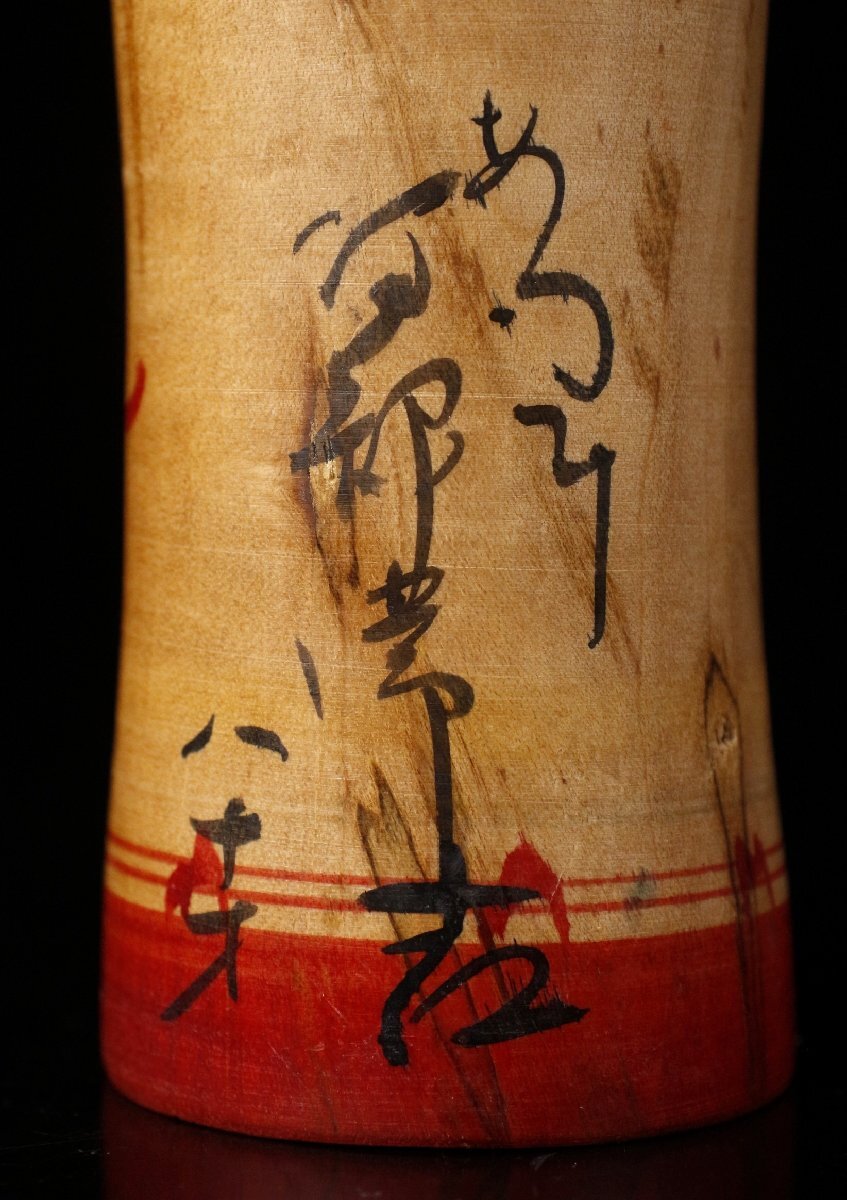 あつみ
阿部常吉
八十才